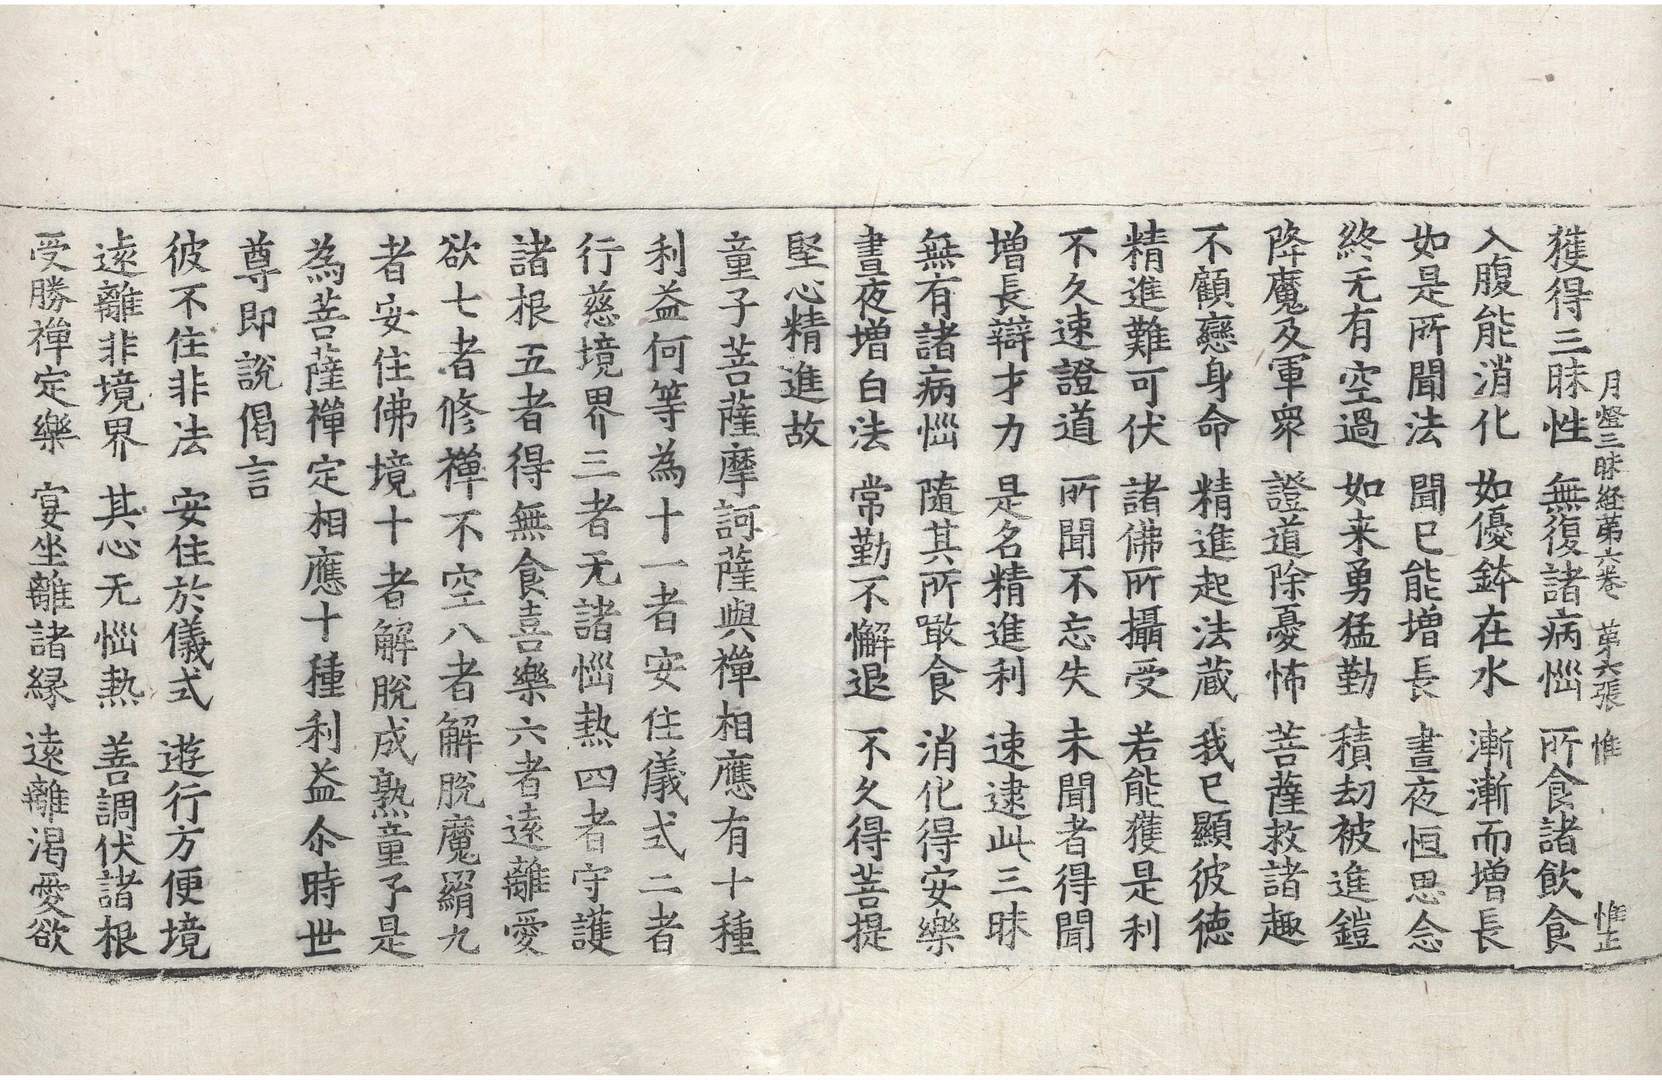 月燈三昧経第六卷 第六張 惟 惟正
獲得三昧性 無復諸病惱 所食諸飲食
入腹能消化 如優鉢在水 漸漸而增長
如是所聞法 聞已能增長 晝夜恒思念
終无有空過 如来勇猛勤 積劫被進鎧
降魔及軍眾 證道除憂怖 菩薩救諸趣
不顧戀身命 精進起法蔵 我已顯彼德
精進難可伏 諸佛所攝受 若能獲是利
不久速證道 所聞不忘失 未聞者得聞
增長辯才力 是名精進利 速逮此三昧
無有諸病惱 隨其所噉食 消化得安樂
晝夜增白法 常勤不懈退 不久得菩提
堅心精進故
童子菩薩摩訶薩與禪相應有十種
利益何等為十一者安住儀式二者
行慈境界三者无諸惱熱四者守護
諸根五者得無食喜樂六者遠離愛
欲七者修禪不空八者解脫魔羂九
者安住佛境十者解脫成熟童子是
為菩薩禪定相應十種利益尒時世
尊即說偈言
彼不住非法 安住於儀式 遊行方便境
遠離非境界 其心无惱熱 善調伏諸根
受勝禪定樂 宴坐離諸縁 遠離渴愛欲